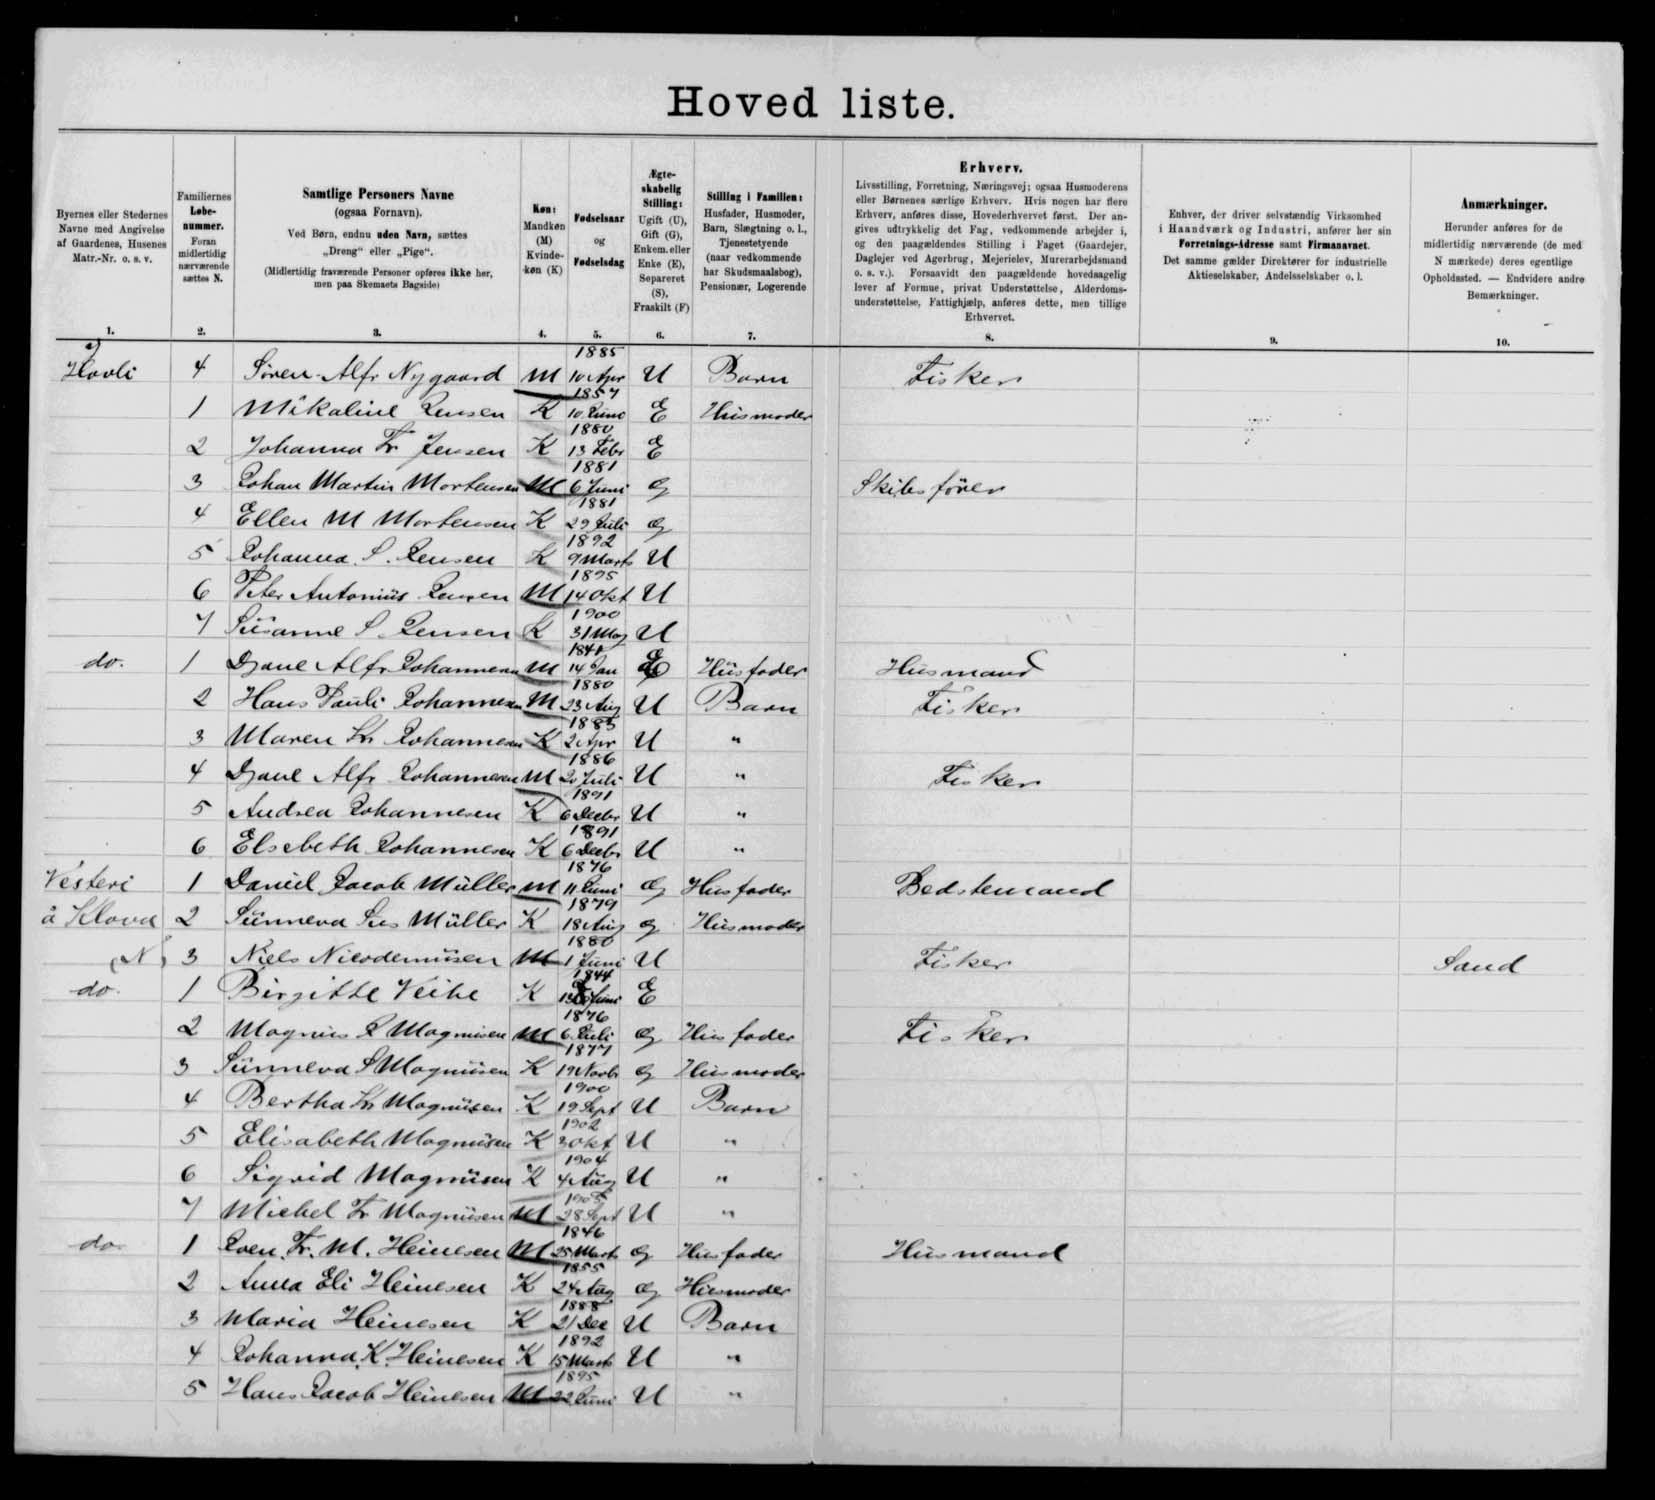 Hoved liste.
Byernes eller Stedernes
Navne med Angivelse
af Gaardenes, Husenes
Matr.-Nr. o. s. v.
Familiernes
Løbe-
nummer.
Foran
midlertidig
nærværende
sættes N.
Samtlige Personers Navne
(ogsaa Fornavn).
Ved Børn, endnu uden Navn, sættes
„Dreng“ eller „Pige“.
(Midlertidig fraværende Personer opføres ikke her,
men paa Skemaets Bagside)
Køn:
Mandkøn
(M)
Kvinde-
køn (K)
Fødselsaar
og
Fødselsdag
Ægte-
skabelig
Stilling:
Ugift (U),
Gift (G),
Enkem. eller
Enke (E),
Separeret
(S),
Fraskilt (F)
Stilling i Familien:
Husfader, Husmoder,
Barn, Slægtning o. l.,
Tjenestetyende
(naar vedkommende
har Skudsmaalsbog),
Pensionær, Logerende
Erhverv.
Livsstilling, Forretning, Næringsvej; ogsaa Husmoderens
eller Børnenes særlige Erhverv. Hvis nogen har flere
Erhverv, anføres disse, Hovederhvervet først. Der an-
gives udtrykkelig det Fag, vedkommende arbejder i,
og den paagældendes Stilling i Faget (Gaardejer,
Daglejer ved Agerbrug, Mejerielev, Murerarbejdsmand
o. s. v.). Forsaavidt den paagældende hovedsagelig
lever af Formue, privat Understøttelse, Alderdoms-
understøttelse, Fattighjælp, anføres dette, men tillige
Erhvervet.
Enhver, der driver selvstændig Virksomhed
i Haandværk og Industri, anfører her sin
Forretnings-Adresse samt Firmanavnet.
Det samme gælder Direktører for industrielle
Aktieselskaber, Andelsselskaber o. l.
Anmærkninger.
Herunder anføres for de
midlertidig nærværende (de med
N mærkede) deres egentlige
Opholdssted. — Endvidere andre
Bemærkninger.
1. 2. 3. 4. 5. 6. 7. 8. 9. 10.
4 Søren Alfr Nygaard M 1885 10 Apr U Barn Fisker
1 Mikaline Jensen K 1857 10 Juno E Husmoder
2 Johanna Fr Jensen K 1880 13 Febr E
3 Johan Martin Mortensen M 1881 6 Juni G Skibsfører
4 Ellen M Mortensen K 1881 29 Juli G
5 Johanna S. Jensen K 1892 9 Marts U
6 Peter Antonius Jensen M 1895 14 Okt U
7 Susanne S. Jensen K 1900 31 Maj U
do. 1 Djone Alfr Johannesen M 1841 14 Jan E Husfader Husmand
2 Hans Pauli Johannesen M 1880 23 Aug U Barn Fisker
3 Maren Kr Johannesen K 1883 2 Apr U "
4 Djone Alfr Johannesen M 1886 20 Juli U " Fisker
5 Andrea Johannesen K 1891 6 Decbr U "
6 Elsebeth Johannesen K 1891 6 Decbr U "
Vesteri 1 Daniel Jacob Müller M 1876 11 Juni G Husfader Bedstemand
á Klova 2 Sunneva Sus Müller K 1879 18 Aug G Husmoder
(N) 3 Niels Nicodemusen M 1880 1 Juni U Fisker Sand
do. 1 Birgitte Veihe K 1844 Juni E
2 Magnus J Magnusen M 1876 6 Juli G Husfader Fisker
3 Sunneva S Magnusen K 1877 19 Novbr G Husmoder
4 Bertha Kr Magnusen K 1900 19 Sept U Barn
5 Elisabeth Magnusen K 1902 3 Okt U "
6 Sigrid Magnusen K 1904 4 Aug U "
7 Michel Fr Magnusen M 1905 28 Sept U "
do. 1 Joen Fr. M. Heinesen M 1846 25 Marts G Husfader Husmand
2 Anna Eli Heinesen K 1855 24 Aug G Husmoder
3 Maria Heinesen K 1888 21 Dec U Barn
4 Johanna K. Heinesen K 1892 15 Marts U "
5 Hans Jacob Heinesen M 1895 22 Juni U "